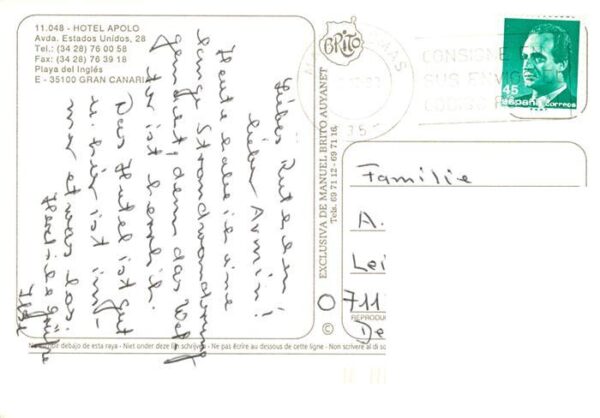 11.048 - HOTEL APOLO
Avda. Estados Unidos, 28
Tel.: (34 28) 76 00 58
Fax: (34 28) 76 39 18
Playa del Inglés
E - 35100 GRAN CANARIA
Liebes Rutchen!
lieber Armin!
Heute habe ich eine
lange Strandwanderung
gemacht, denn das Wet-
ter ist herrlich.
Das Hotel ist gut
u. hier ist im-
mer etwas los.
Herzliche Grüße
Ilse
BRITO
EXCLUSIVA DE MANUEL BRITO AUYANET
Tels. 69 71 12 - 69 71 16.
CONSIGNE EN
SUS ENVIOS
CODIGO
45
españa correos
Familie
A.
Lei
O 711
De
REPRODUC
©
No escribir debajo de esta raya - Niet onder deze lijn schrijven - Ne pas écrire au dessous de cette ligne - Non scrivere al di so